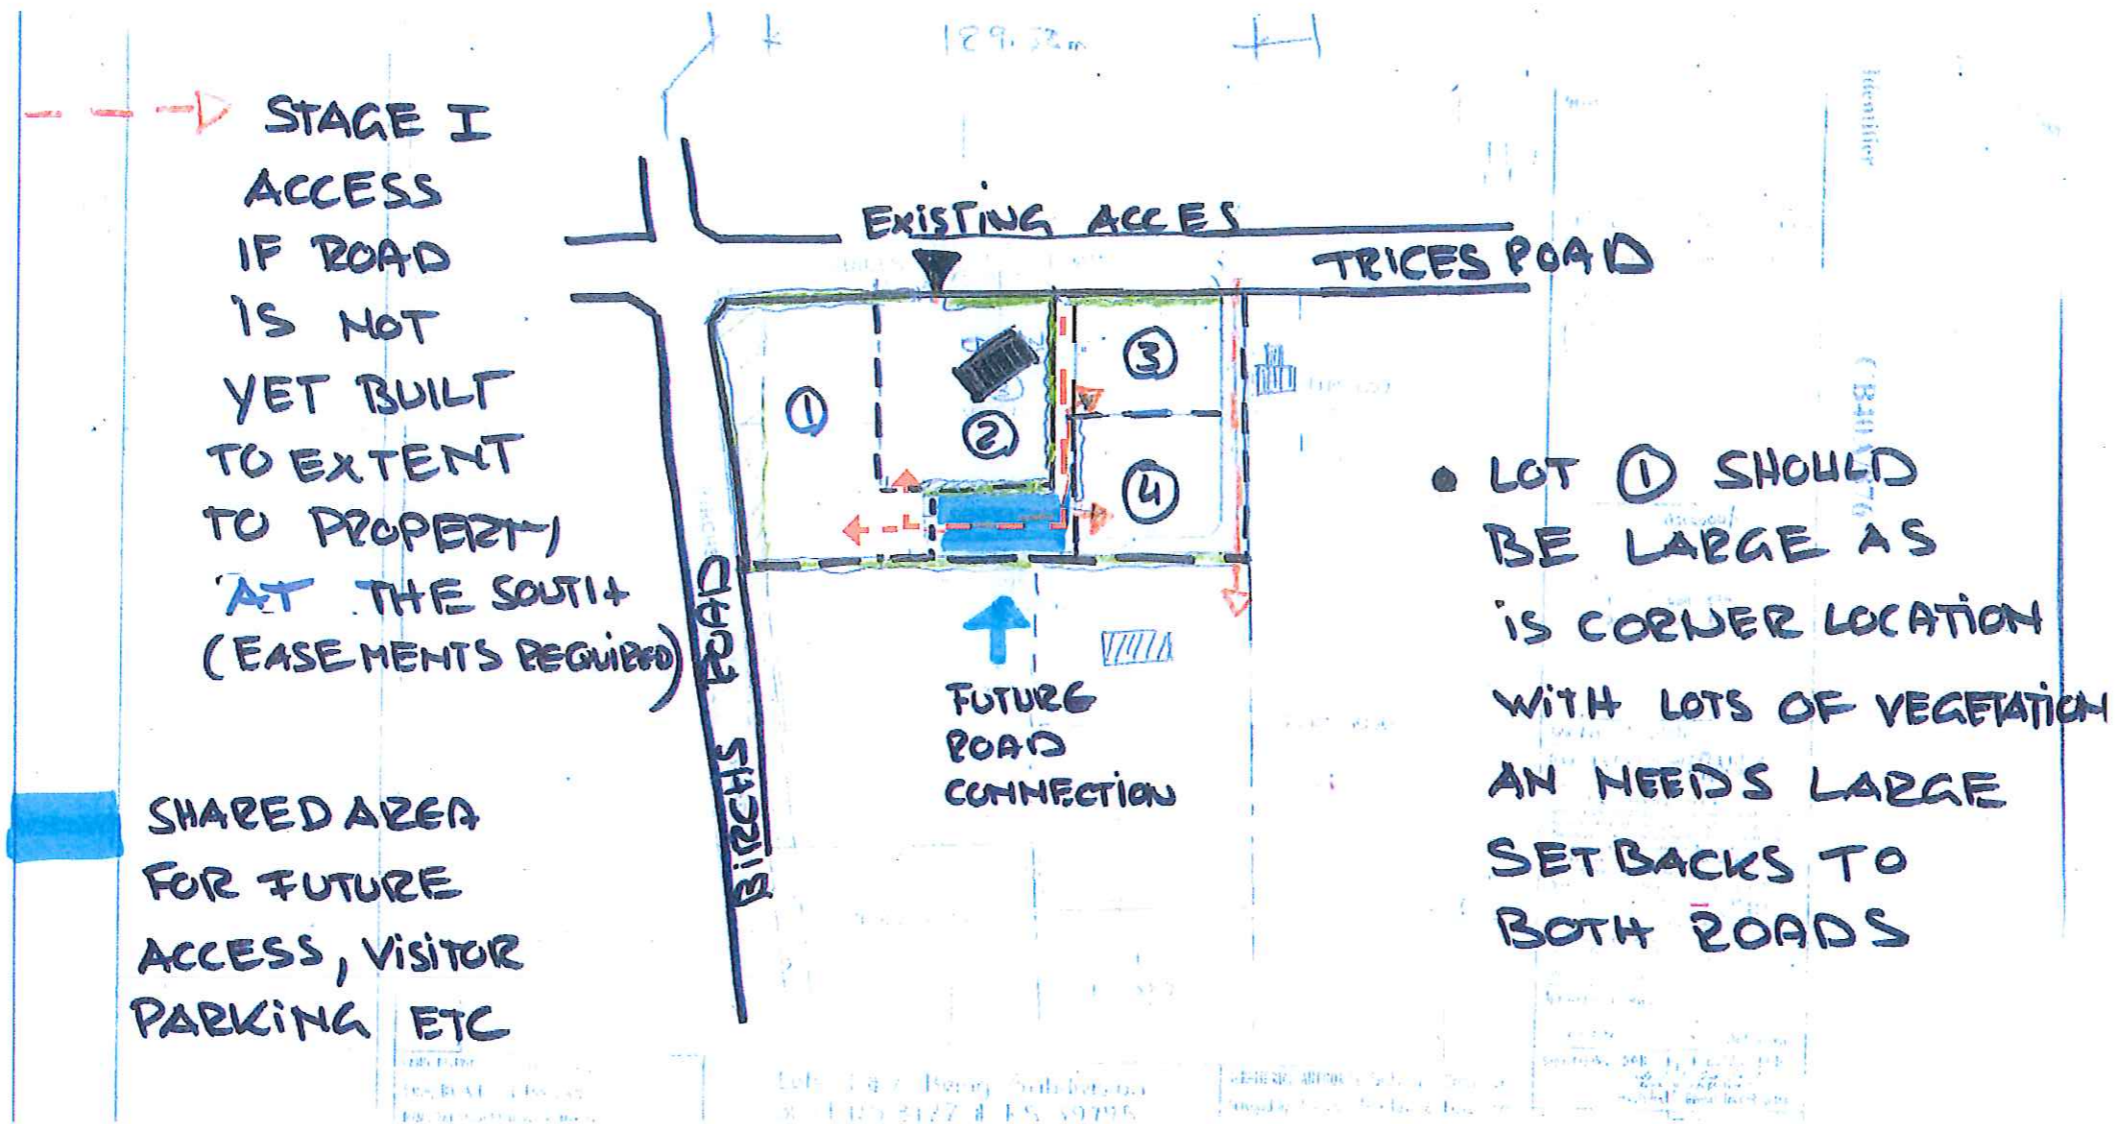 129.52m
STAGE I
ACCESS
IF ROAD
IS NOT
YET BUILT
TO EXTENT
TO PROPERTY
AT THE SOUTH
(EASEMENTS REQUIRED)
SHARED AREA
FOR FUTURE
ACCESS, VISITOR
PARKING ETC
EXISTING ACCES
TRICES ROAD
1
2
3
4
BIRCHS ROAD
FUTURE
ROAD
CONNECTION
• LOT 1 SHOULD
BE LARGE AS
IS CORNER LOCATION
WITH LOTS OF VEGETATION
AN NEEDS LARGE
SETBACKS TO
BOTH ROADS
Identifier